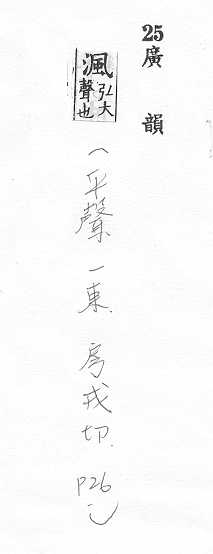 25廣韻
渢弘大聲也
(平聲 一東 房戎切 P26)